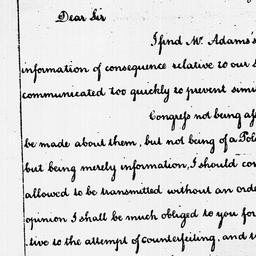 Dear Sir
I find Mr. Adams's
information of consequence relative to our
communicated too quickly to prevent
Congress not being
be made about them, but not being of a
but being merely information, I should
allowed to be transmitted without an
opinion I shall be much obliged to you for
tive to the attempt of counterfeiting, and